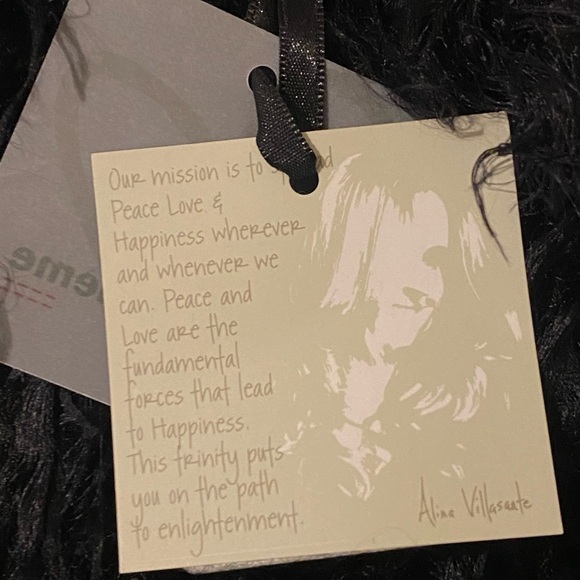 Our mission is to spread
Peace Love &
Happiness wherever
and whenever we
can. Peace and
Love are the
fundamental
forces that lead
to Happiness.
This trinity puts
you on the path
to enlightenment.
Alina Villasante